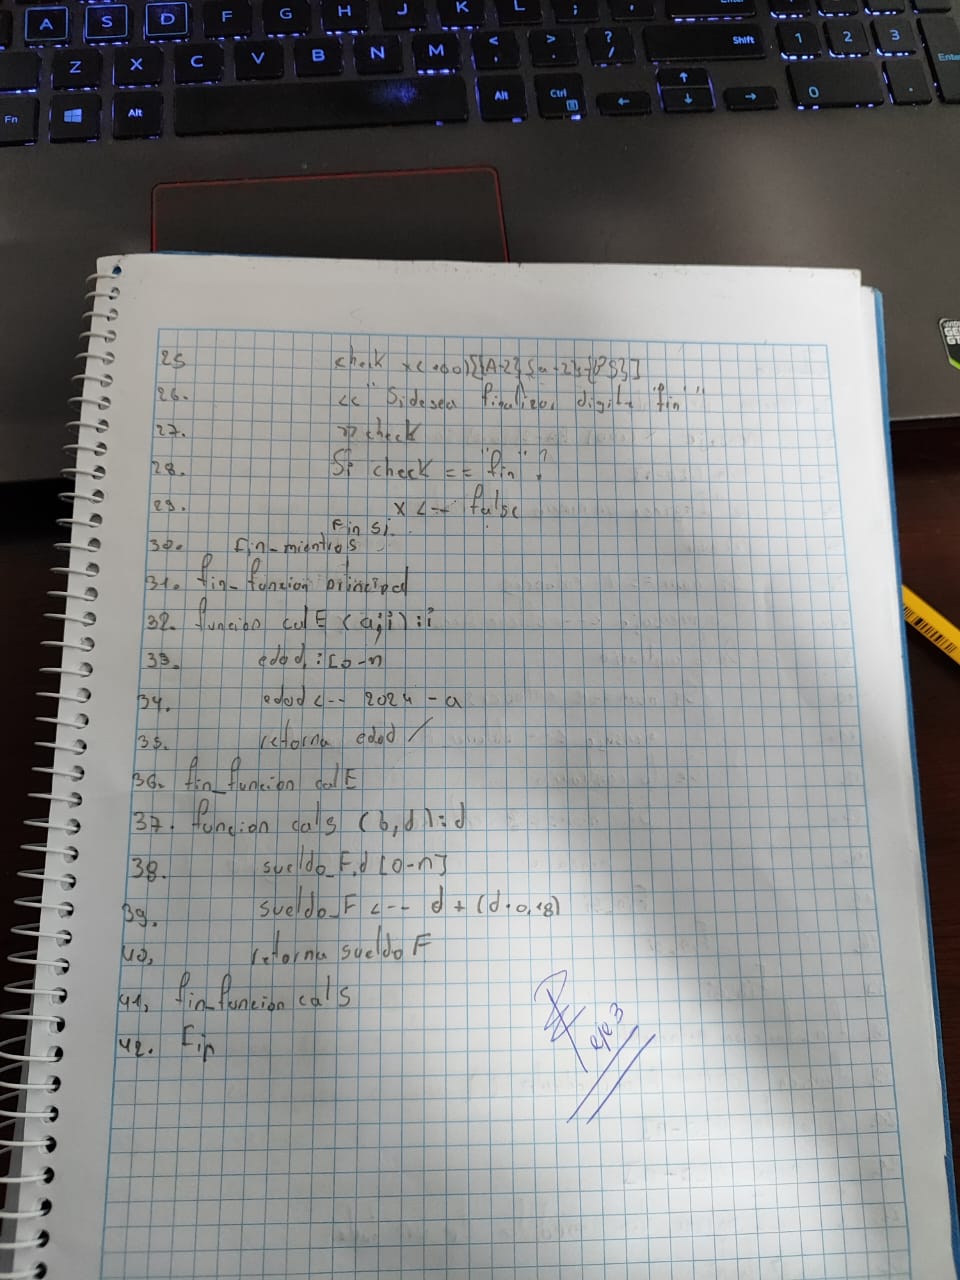 A S D F G H J K L ; '
Z X C V B N M < , > . ? / Shift 1 2 3 Enter
Fn Alt Alt Ctrl ← ↑ ↓ → 0 .
25 check
26. << "Si desea finalizar, digite "fin""
27. >> check
28. Si check == "fin" ?
29. x <-- false
Fin si.
30. Fin_mientras
31. fin_funcion principal
32. funcion calE (a,i) : i
33. edad, i [0-n
34. edad <-- 2024 - a
35. retorna edad /
36. fin_funcion calE
37. funcion calS (b,d) : d
38. sueldo_F,d [0-n]
39. sueldo_F <-- d + (d*0,18)
40, retorna sueldo F
41, fin_funcion calS
42. Fin
eje 3